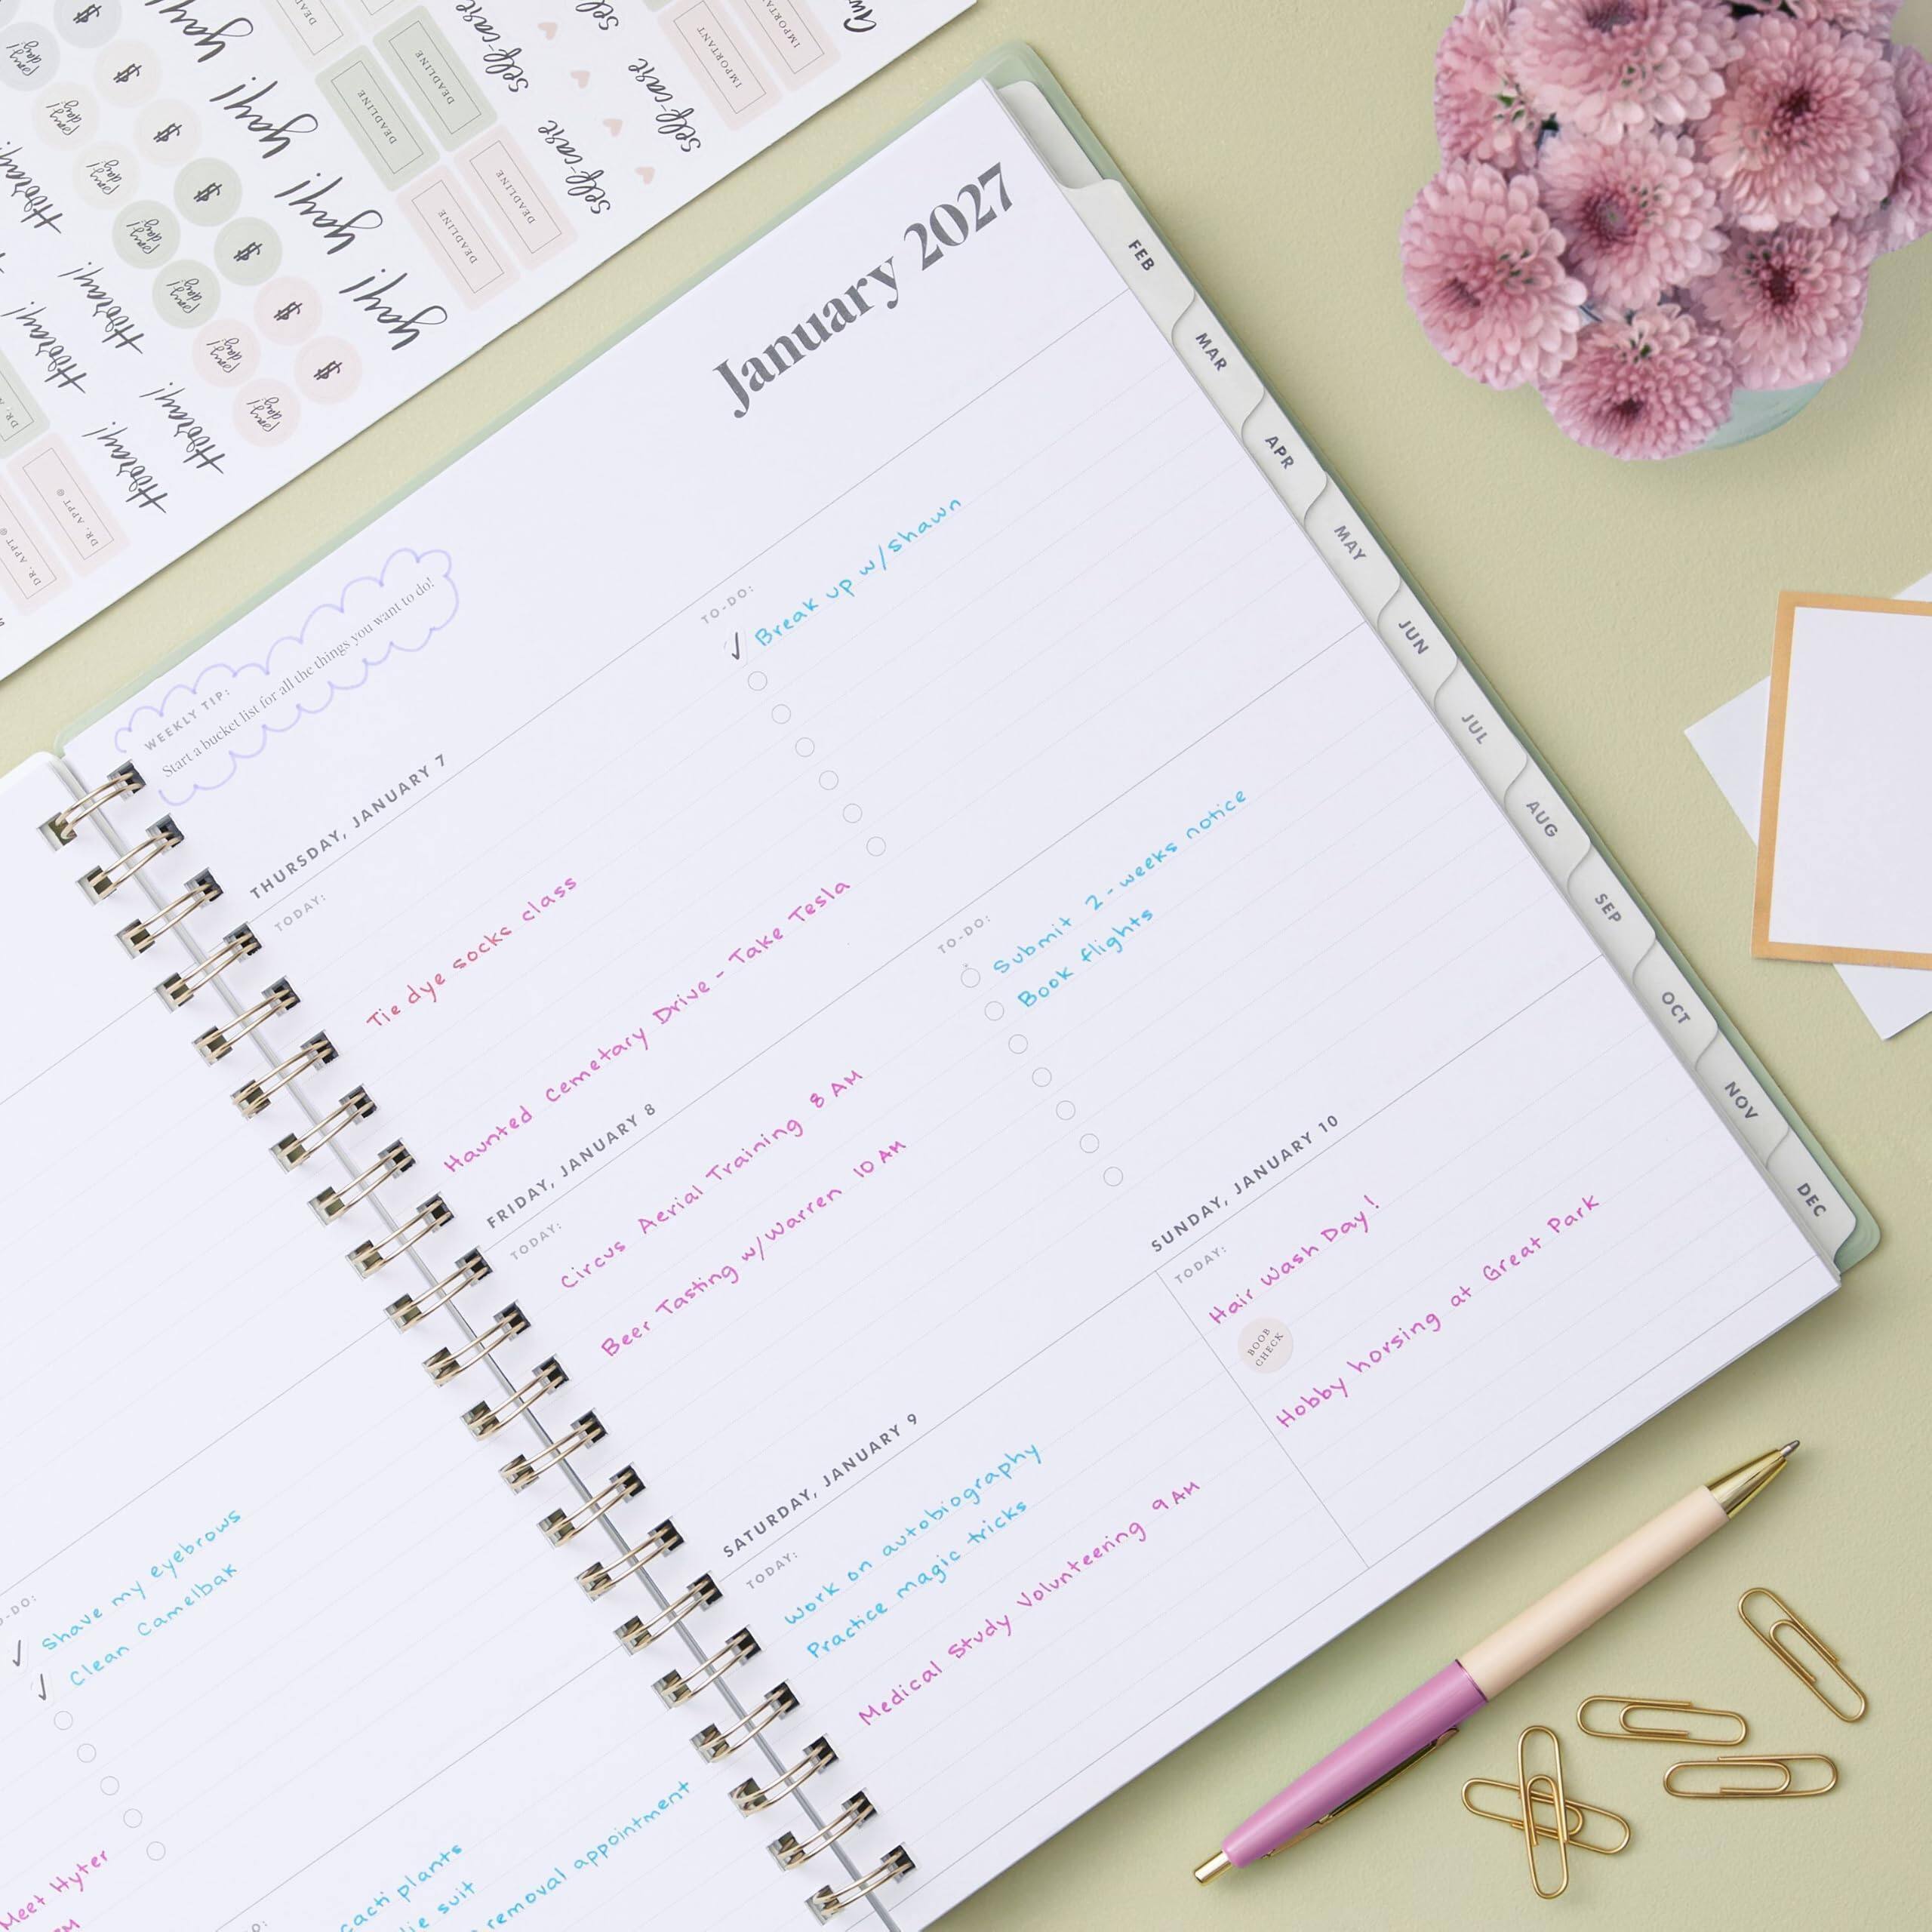 DEADLINE
DEADLINE
DEADLINE
DEADLINE
DEADLINE
IMPORTANT
IMPORTANT
self-care
self-care
self-care
self-care
yay!
yay!
yay!
yay!
$
$
$
$
$
$
$
pay day!
pay day!
pay day!
pay day!
pay day!
pay day!
pay day!
Hooray!
Hooray!
Hooray!
Hooray!
Hooray!
DR. APPT @
DR. APPT @
January 2027
WEEKLY TIP:
Start a bucket list for all the things you want to do!
THURSDAY, JANUARY 7
TODAY:
Tie dye socks class
Haunted Cemetary Drive - Take Tesla
TO-DO:
Break up w/shawn
FRIDAY, JANUARY 8
TODAY:
Circus Aerial Training 8 AM
Beer Tasting w/Warren 10 AM
TO-DO:
Submit 2-weeks notice
Book flights
SATURDAY, JANUARY 9
TODAY:
Work on autobiography
Practice magic tricks
Medical Study Volunteering 9 AM
SUNDAY, JANUARY 10
TODAY:
Hair Wash Day!
BOOB
CHECK
Hobby horsing at Great Park
FEB
MAR
APR
MAY
JUN
JUL
AUG
SEP
OCT
NOV
DEC
Shave my eyebrows
Clean Camelbak
Meet Hyter
cacti plants
suit
removal appointment